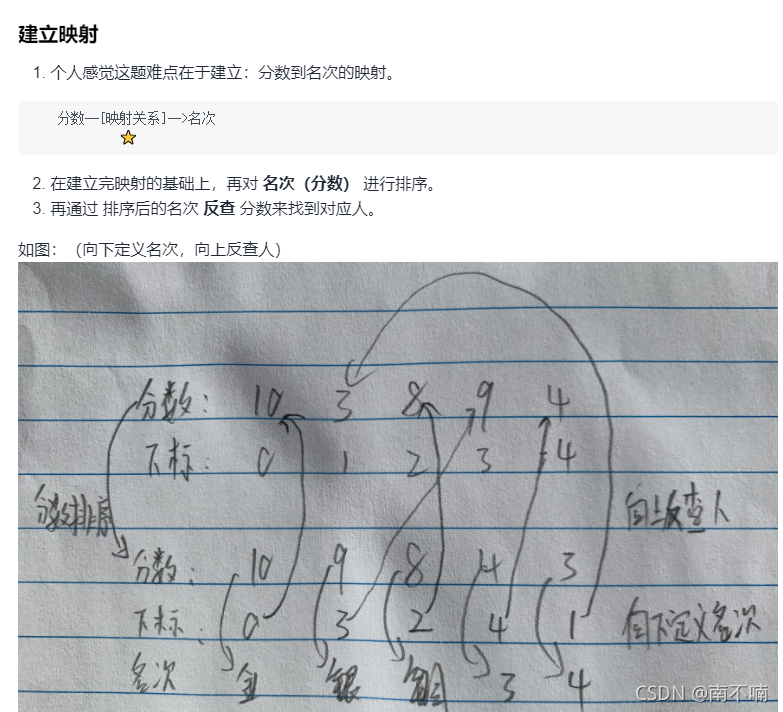 建立映射
1. 个人感觉这题难点在于建立：分数到名次的映射。
分数—[映射关系]—>名次
2. 在建立完映射的基础上，再对 名次（分数） 进行排序。
3. 再通过 排序后的名次 反查 分数来找到对应人。
如图：（向下定义名次，向上反查人）
分数： 10 3 8 9 4
下标： 0 1 2 3 4
分数排序
向上反查人
分数： 10 9 8 4 3
下标： 0 3 2 4 1 向下定义名次
名次 金 银 铜 3 4
CSDN @南不喃